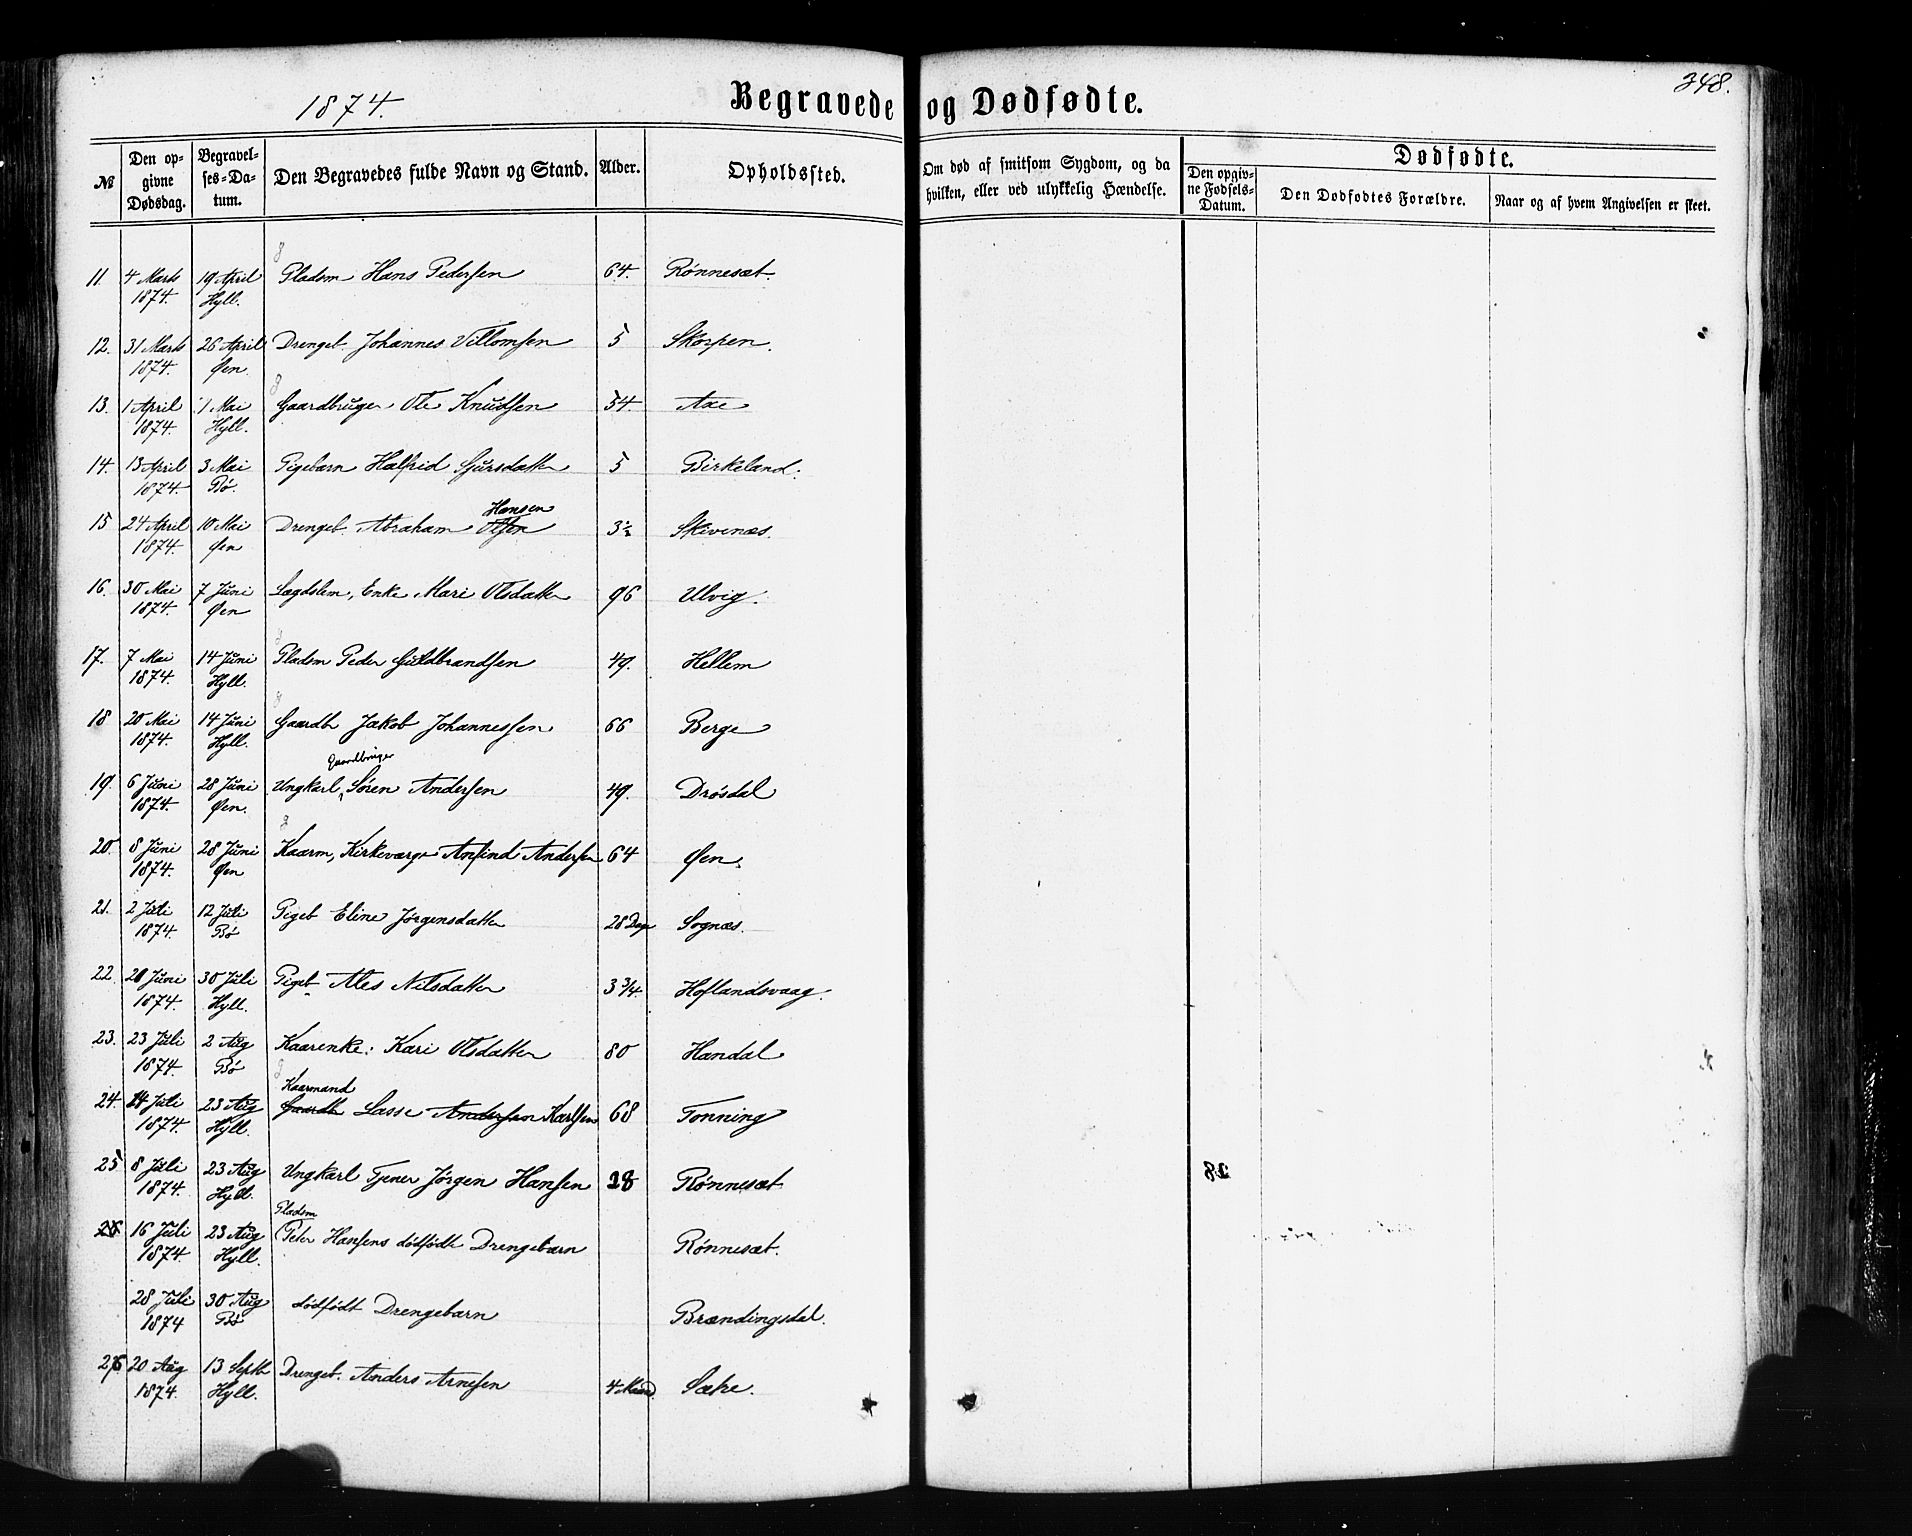 1874.
Begravede og Dødfødte.
348.
№
Den opgivne Dødsdag.
Begravelses-Datum.
Den Begravedes fulde Navn og Stand.
Alder.
Opholdssted.
Om død af smitsom Sygdom, og da hvilken, eller ved ulykkelig Hændelse.
Dødfødte.
Den opgivne Fødsels-Datum.
Den Dødfødtes Forældre.
Naar og af hvem Angivelsen er skeet.
11. 4 Marts 1874. 19 April Hyll. Pladsm Hans Pedersen 64. Rønnesæt.
12. 31 Marts 1874. 26 April Øen. Drengeb. Johannes Villomsen 5 Skorpen.
13. 1 April 1874. 1 Mai Hyll. Gaardbruger Ole Knudsen 54. Axe
14. 13 April 1874. 3 Mai Bø. Pigebarn Halfrid Sjursdatter 5 Birkeland.
Hansen
15 24 April 1874. 10 Mai Øen Drengeb. Abraham Olsen 3½ Skivenæs.
16. 30 Mai 1874. 7 Juni Øen Lægdslem, Enke Mari Olsdatter 96 Ulvig.
17. 7 Mai 1874. 14 Juni Hyll. Pladsm Peder Guldbrandsen 49. Hellem
18 20 Mai 1874. 14 Juni Hyll. Gaardb Jakob Johannessen 66 Berge
Gaardbruger
19. 6 Juni 1874. 28 Juni Øen. Ungkarl Søren Andersen 49. Drøsdal
20. 8 Juni 1874. 28 Juni Øen Kaarm, Kirkeværge Anfind Andersen 64 Øen.
21. 2 Juli 1874. 12 Juli Bø Pigeb Eline Jørgensdatter 28 Dage Sognæs.
22. 21 Juni 1874. 30 Juli Hyll. Pigeb Ales Nilsdatter 3 3/4. Hoflandsvaag.
23. 23 Juli 1874. 2 Aug Bø Kaarenke: Kari Olsdatter 80 Handal
Kaarmand
24. 14 Juli 1874. 23 Aug Hyll. Gaardb Lasse Andersen Karlsen 68 Tonning
25 8 Juli 1874. 23 Aug Hyll. Ungkarl Tjener Jørgen Hansen 28 Rønnesæt
Pladsm
26 16 Juli 1874. 23 Aug Hyll. Peter Hansens dødfødte Drengebarn Rønnesæt.
28 Juli 1874 30 Aug Bø dødfødt Drengebarn Brændingsdal.
26 20 Aug 1874. 13 Septb Hyll. Drengeb. Anders Arnesen 4 Maand. Sæhe.